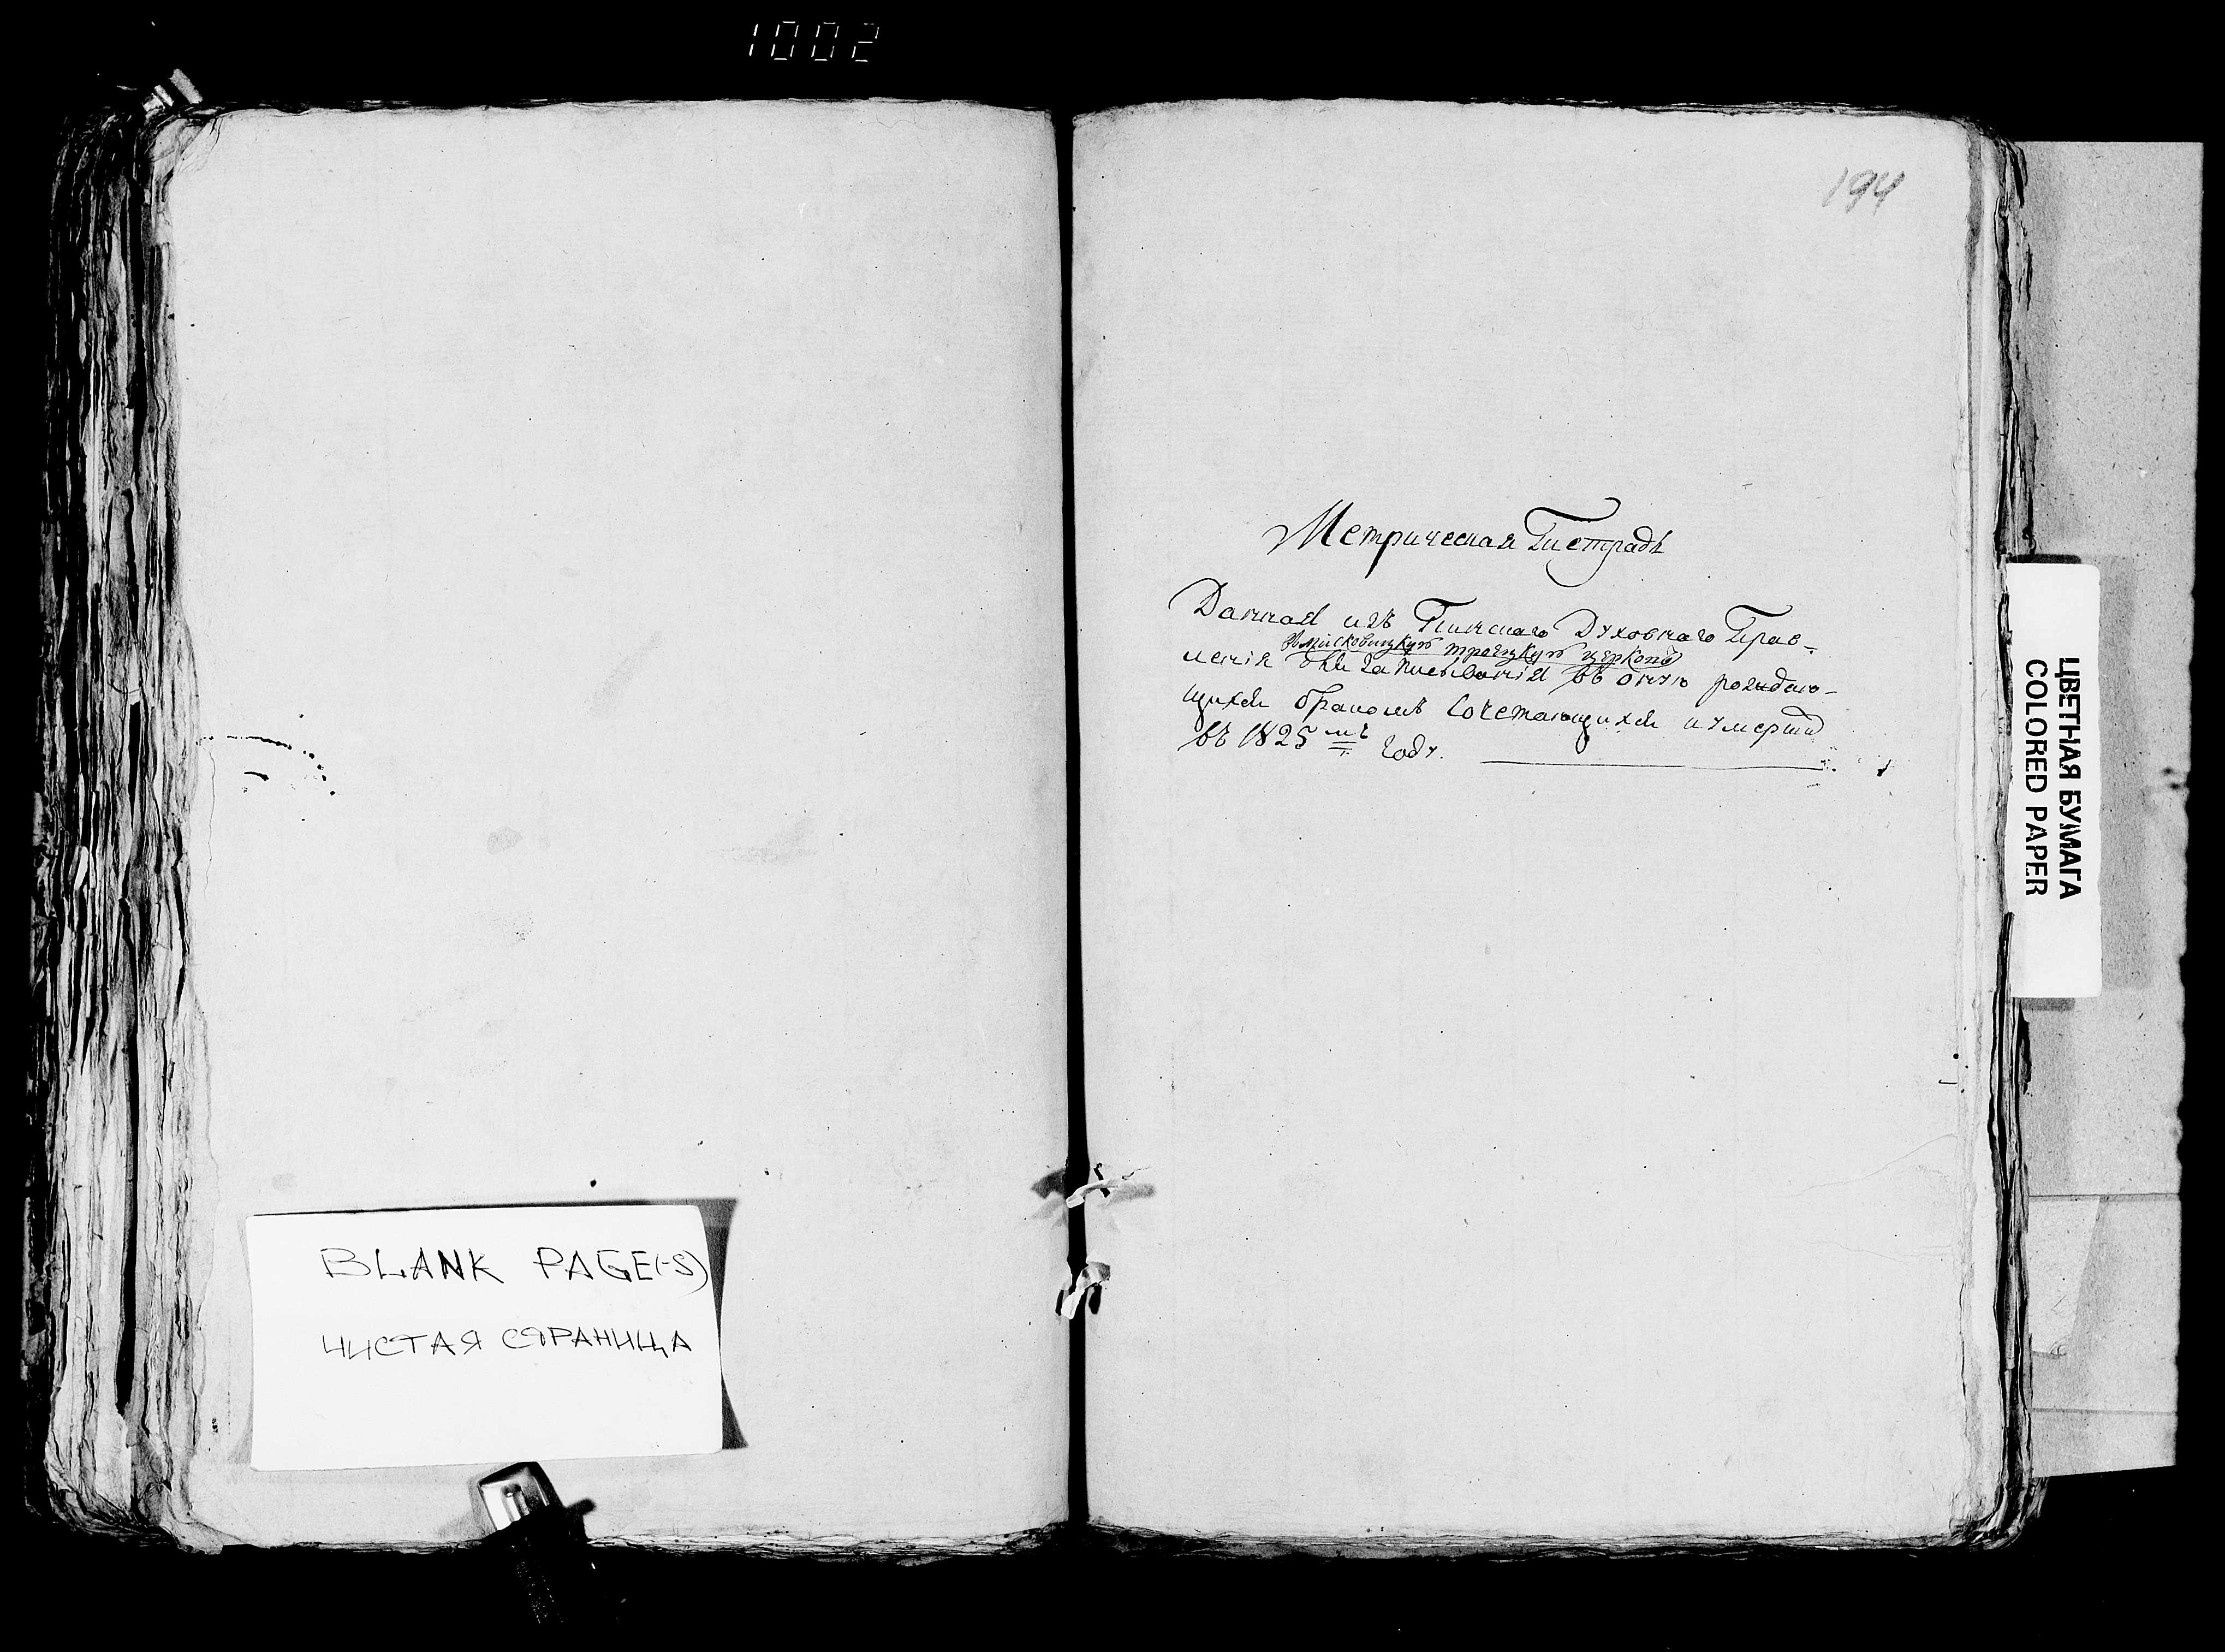 1002
194
Метрическая Тетрадь
Данная изъ Пинскаго Духовнаго Прав-
въ Мисковицкую троецкую церковь
ленія для записыванія въ оную рождаю-
щихся бракомъ сочетающихся и умерши
въ 1825 мъ Году.
BLANK PAGE(-S)
ЧИСТАЯ СТРАНИЦА
ЦВЕТНАЯ БУМАГА
COLORED PAPER